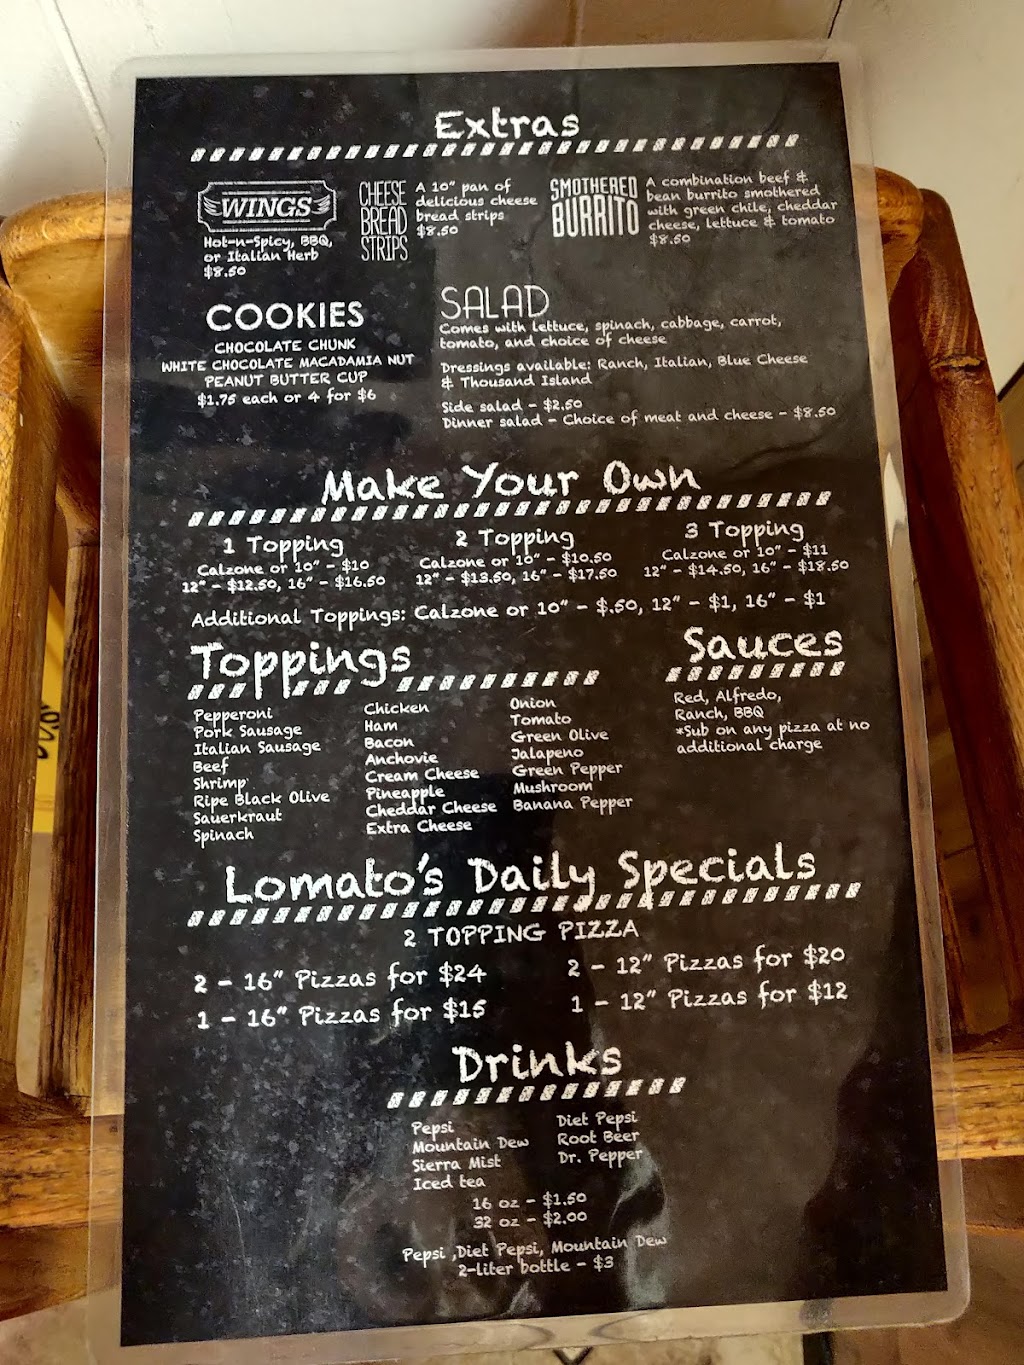 Extras
WINGS
Hot-n-Spicy, BBQ,
or Italian Herb
$8.50
CHEESE
BREAD
STRIPS
A 10" pan of
delicious cheese
bread strips
$8.50
SMOTHERED
BURRITO
A combination beef &
bean burrito smothered
with green chile, cheddar
cheese, lettuce & tomato
$8.50
COOKIES
CHOCOLATE CHUNK
WHITE CHOCOLATE MACADAMIA NUT
PEANUT BUTTER CUP
$1.75 each or 4 for $6
SALAD
Comes with lettuce, spinach, cabbage, carrot,
tomato, and choice of cheese
Dressings available: Ranch, Italian, Blue Cheese
& Thousand Island
Side salad - $2.50
Dinner salad - Choice of meat and cheese - $8.50
Make Your Own
1 Topping
Calzone or 10" - $10
12" - $12.50, 16" - $16.50
2 Topping
Calzone or 10" - $10.50
12" - $13.50, 16" - $17.50
3 Topping
Calzone or 10" - $11
12" - $14.50, 16" - $18.50
Additional Toppings: Calzone or 10" - $.50, 12" - $1, 16" - $1
Toppings
Pepperoni
Pork Sausage
Italian Sausage
Beef
Shrimp
Ripe Black Olive
Sauerkraut
Spinach
Chicken
Ham
Bacon
Anchovie
Cream Cheese
Pineapple
Cheddar Cheese
Extra Cheese
Onion
Tomato
Green Olive
Jalapeno
Green Pepper
Mushroom
Banana Pepper
Sauces
Red, Alfredo,
Ranch, BBQ
*Sub on any pizza at no
additional charge
Lomato's Daily Specials
2 TOPPING PIZZA
2 - 16" Pizzas for $24
1 - 16" Pizzas for $15
2 - 12" Pizzas for $20
1 - 12" Pizzas for $12
Drinks
Pepsi
Mountain Dew
Sierra Mist
Iced tea
Diet Pepsi
Root Beer
Dr. Pepper
16 oz - $1.50
32 oz - $2.00
Pepsi ,Diet Pepsi, Mountain Dew
2-liter bottle - $3